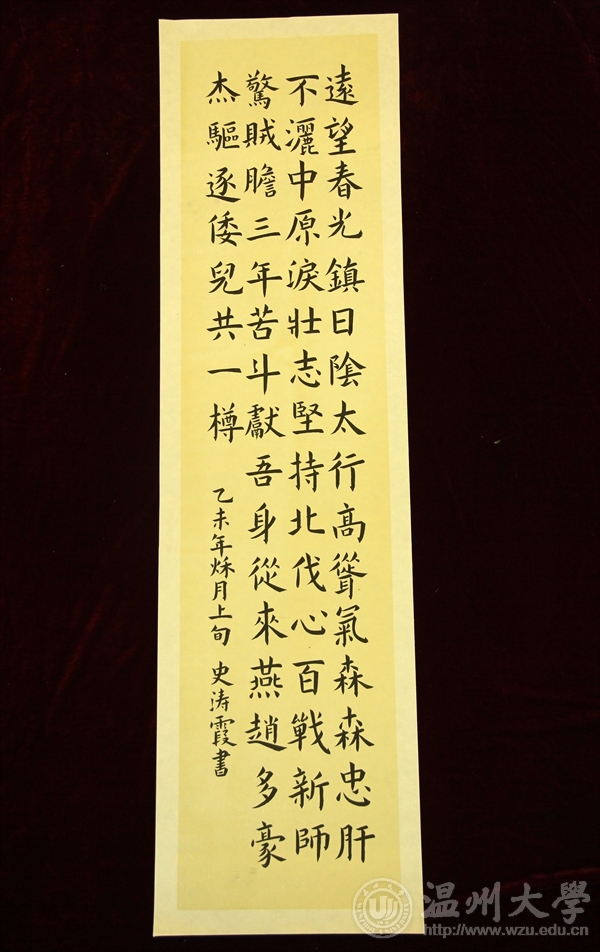 遠望春光鎮日陰太行高聳氣森森忠肝
不灑中原淚壯志堅持北伐心百戰新師
驚賊膽三年苦斗獻吾身從來燕趙多豪
杰驅逐倭兒共一樽
乙未年秌月上旬 史涛霞書
温州大學
http://www.wzu.edu.cn